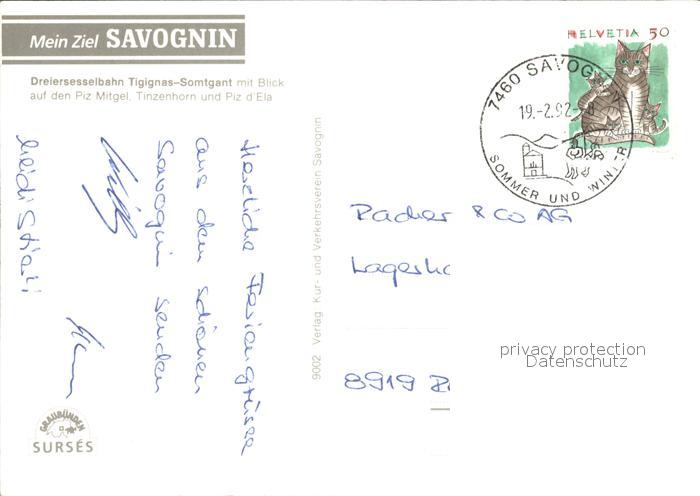 Mein Ziel SAVOGNIN
Dreiersesselbahn Tigignas–Somtgant mit Blick
auf den Piz Mitgel, Tinzenhorn und Piz d'Ela
HELVETIA 50
7460 SAVOGNIN
19.-2.92-
SOMMER UND WINTER
Herzliche Feriengrüsse
aus dem schönen
Savognin senden
Heidi
9002 Verlag Kur- und Verkehrsverein Savognin
Pacher & Co AG
Lagerha
8919 R
privacy protection
Datenschutz
GRAUBÜNDEN
SURSÉS